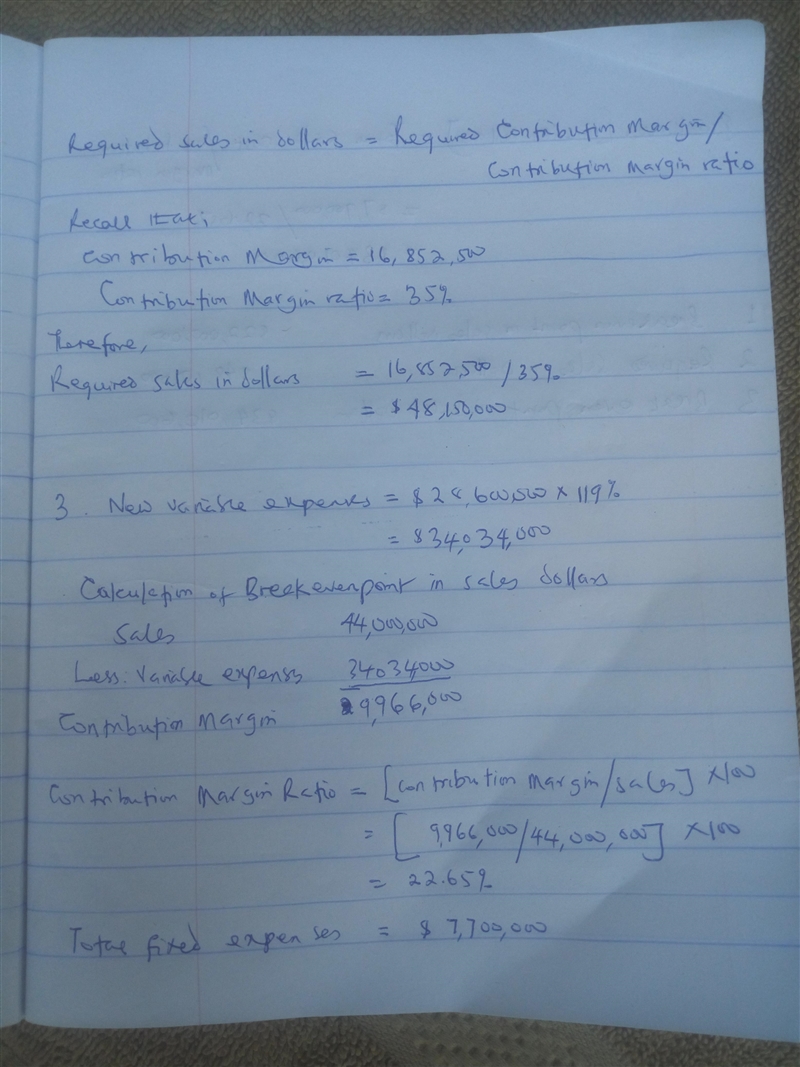 Required sales in dollars = Required Contribution Margin/
Contribution Margin ratio
Recall that;
Contribution Margin = 16,852,500
Contribution Margin ratio = 35%
Therefore,
Required sales in dollars = 16,852,500 / 35%
= $48,150,000
3. New variable expenses = $28,600,000 × 119%
= $34,034,000
Calculation of Breakevenpoint in sales dollars
Sales 44,000,000
Less: Variable expenses 34034000
Contribution Margin 9,966,000
Contribution Margin Ratio = [Contribution Margin/sales] ×100
= [9,966,000/44,000,000] ×100
= 22.65%
Total fixed expenses = $7,700,000